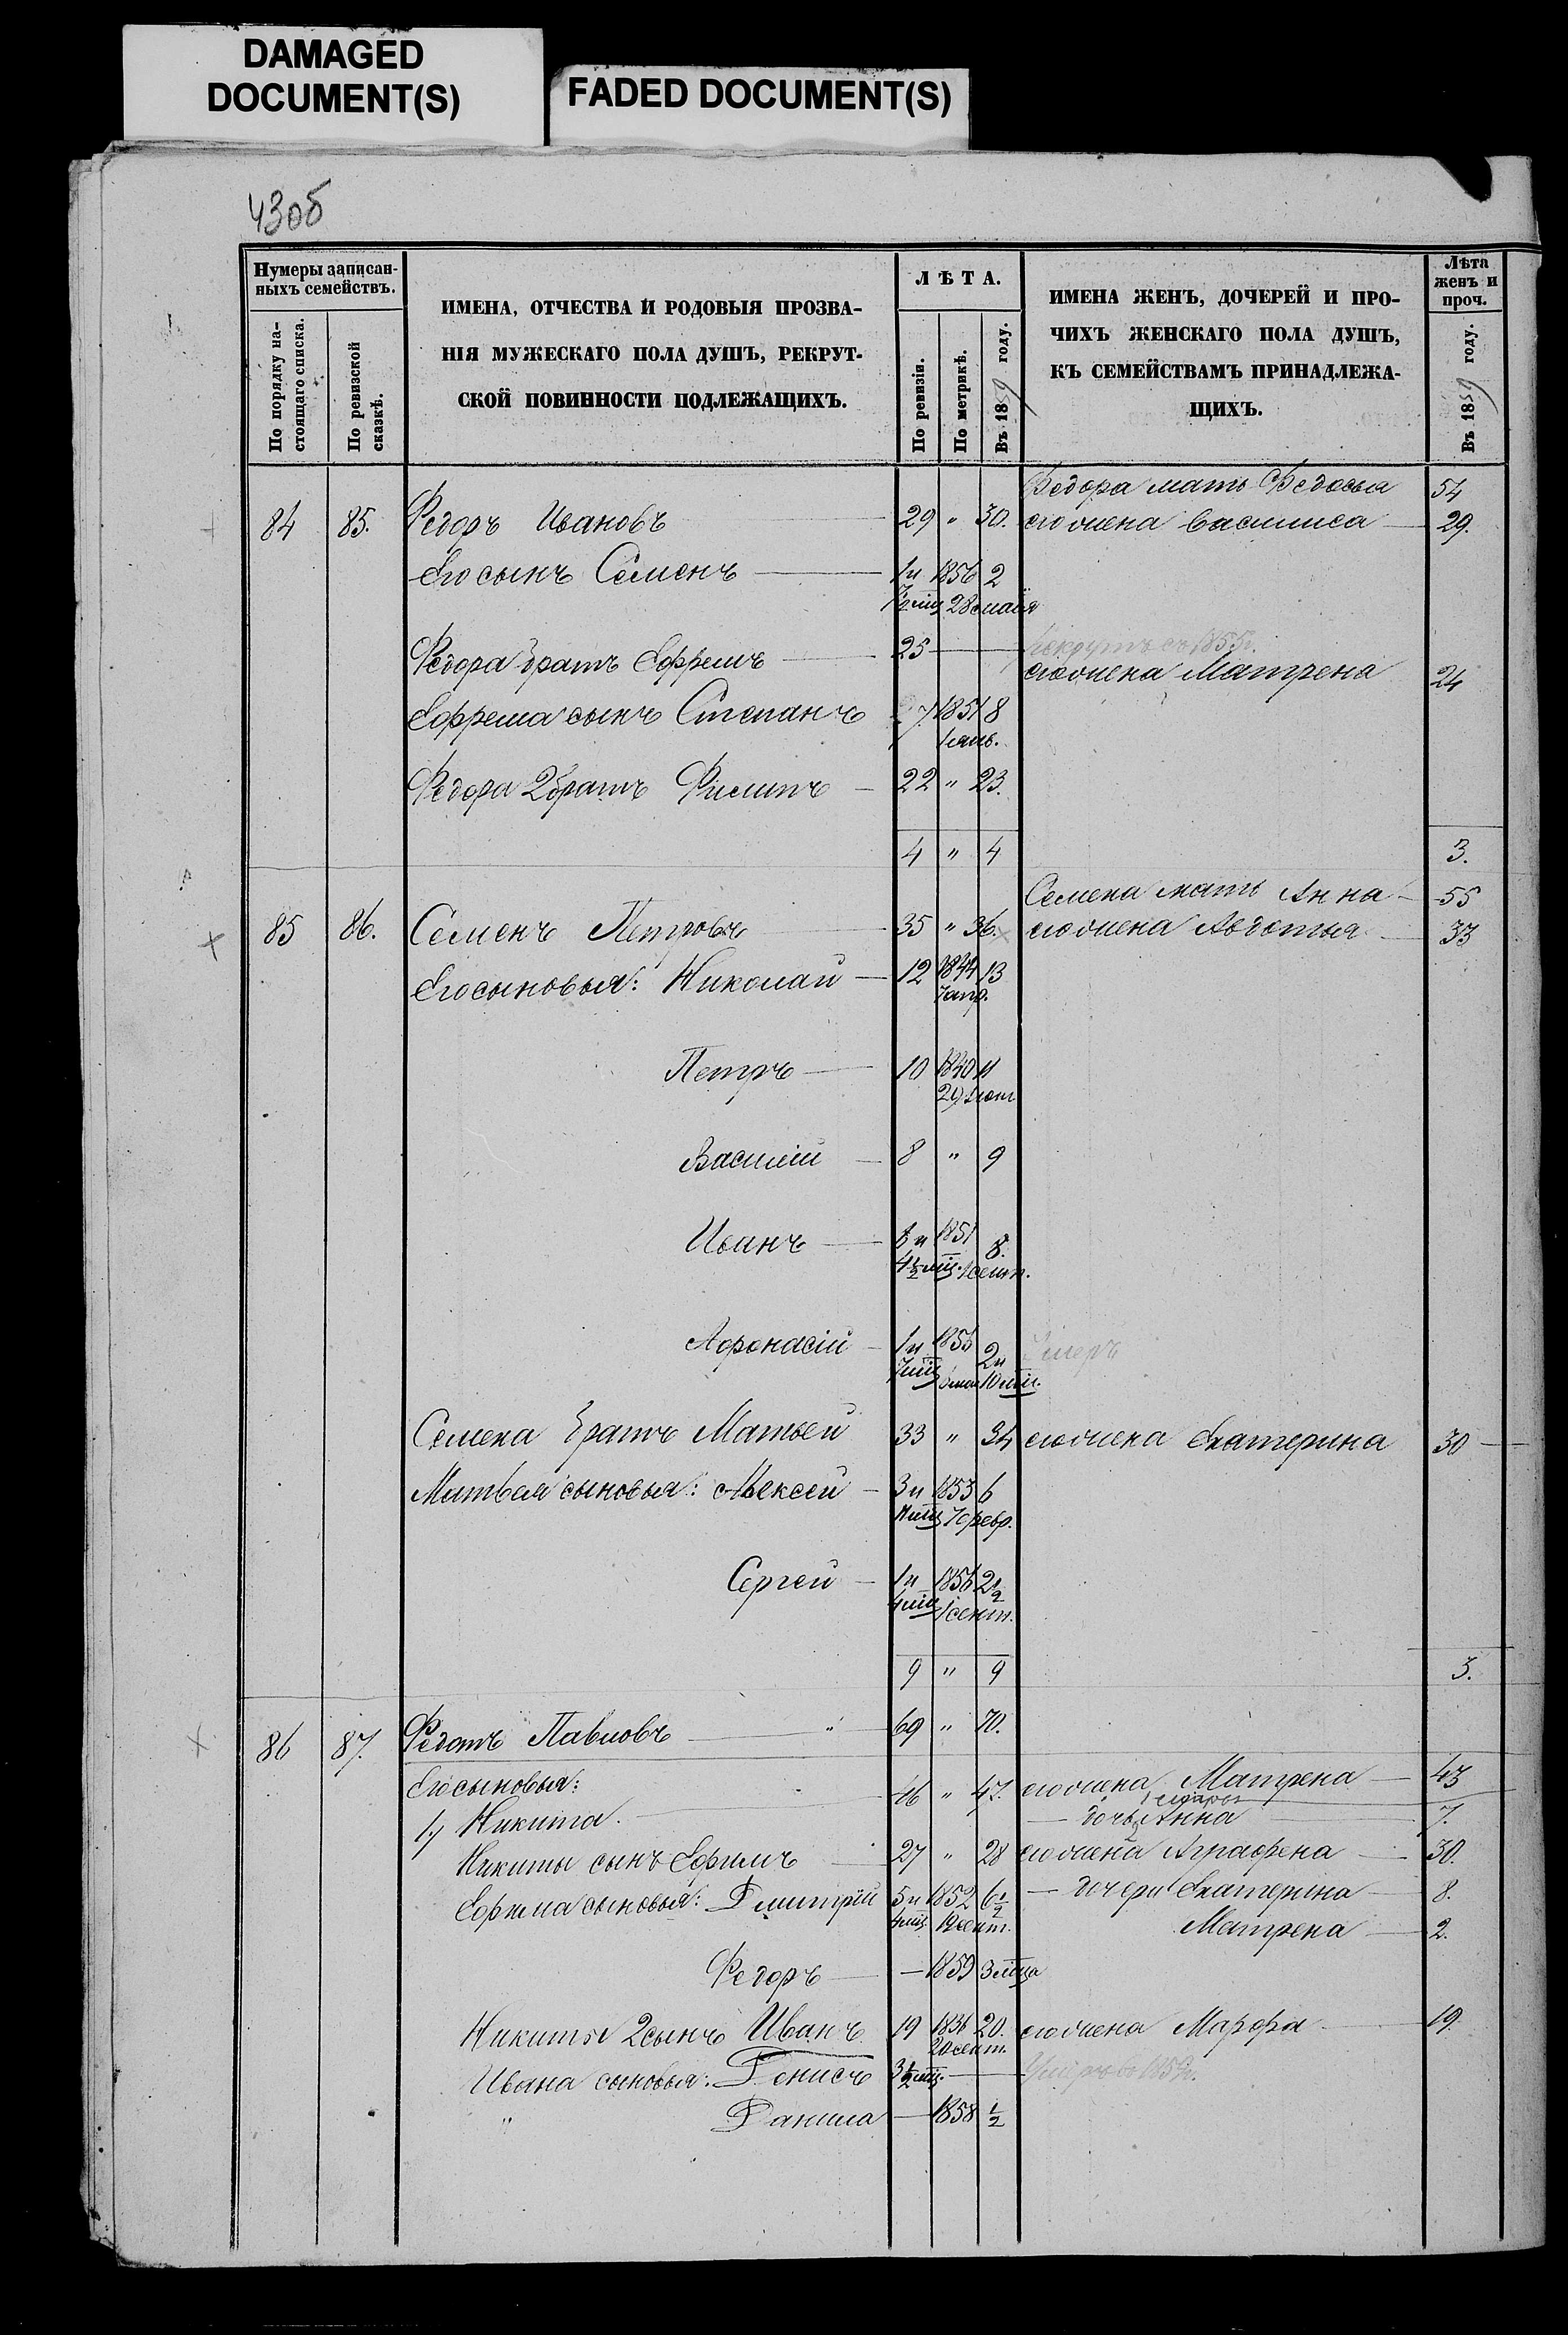 DAMAGED
DOCUMENT(S)
FADED DOCUMENT(S)
43об
Нумеры записан-
ныхъ семействъ.
По порядку на-
стоящаго списка.
По ревизской
сказкѣ.
ИМЕНА, ОТЧЕСТВА И РОДОВЫЯ ПРОЗВА-
НІЯ МУЖЕСКАГО ПОЛА ДУШЪ, РЕКРУТ-
СКОЙ ПОВИННОСТИ ПОДЛЕЖАЩИХЪ.
ЛѢТА.
По ревизіи.
По метрикѣ.
Въ 1859 году.
ИМЕНА ЖЕНЪ, ДОЧЕРЕЙ И ПРО-
ЧИХЪ ЖЕНСКАГО ПОЛА ДУШЪ,
КЪ СЕМЕЙСТВАМЪ ПРИНАДЛЕЖА-
ЩИХЪ.
Лѣта
женъ и
проч.
Въ 1859 году.
Федора мать Федосья 54
84 85. Федоръ Ивановъ 29 " 30. его жена Василиса 29.
Его сынъ Семенъ 1 и 1856 2
7½ мц 28 маія
Федора братъ Ефремъ 25 рекрутъ съ 1855г.
его жена Матрена 24
Ефрема сынъ Степанъ 7. 1851 8
1 янв.
Федора 2 братъ Филипъ 22 " 23.
4 " 4 3.
Семена мать Анна 55
85 86. Семенъ Петровъ 35 " 36. его жена Авдотья 33
Его сыновья: Николай 12 1844 13
7 апр.
Петръ 10 11
29
Василій 8 " 9
Иванъ 1851 8.
4½ мц. 1 сент.
Афонасій 1 и 2 и Умеръ
7 мц 10 мц.
Семена братъ Матвей 33 " 34 его жена Екатерина 30
Матвея сыновья: Алексей 3 и 1853 6
7 февр.
Сергей 1 и 1856 2½
4 мц 1 сент.
9 " 9 3.
86 87. Федотъ Павловъ " 69 " 70.
Его сыновья:
1, Никита. 46 " 47. его жена Матрена 43
дочь Анна 7.
Никиты сынъ Ефимъ 27 " 28 его жена Аграфена 30.
Ефима сыновья: Дмитрій 5 и 1852 6½ дочери Екатерина 8.
4 мц. сент. Матрена 2.
Федоръ 1859 3 мца
Никиты 2 сынъ Иванъ 19 1836 20. его жена Марфа 19.
20 сент.
Ивана сыновья: Денисъ 3½ мц.
" Данила 1858 ½